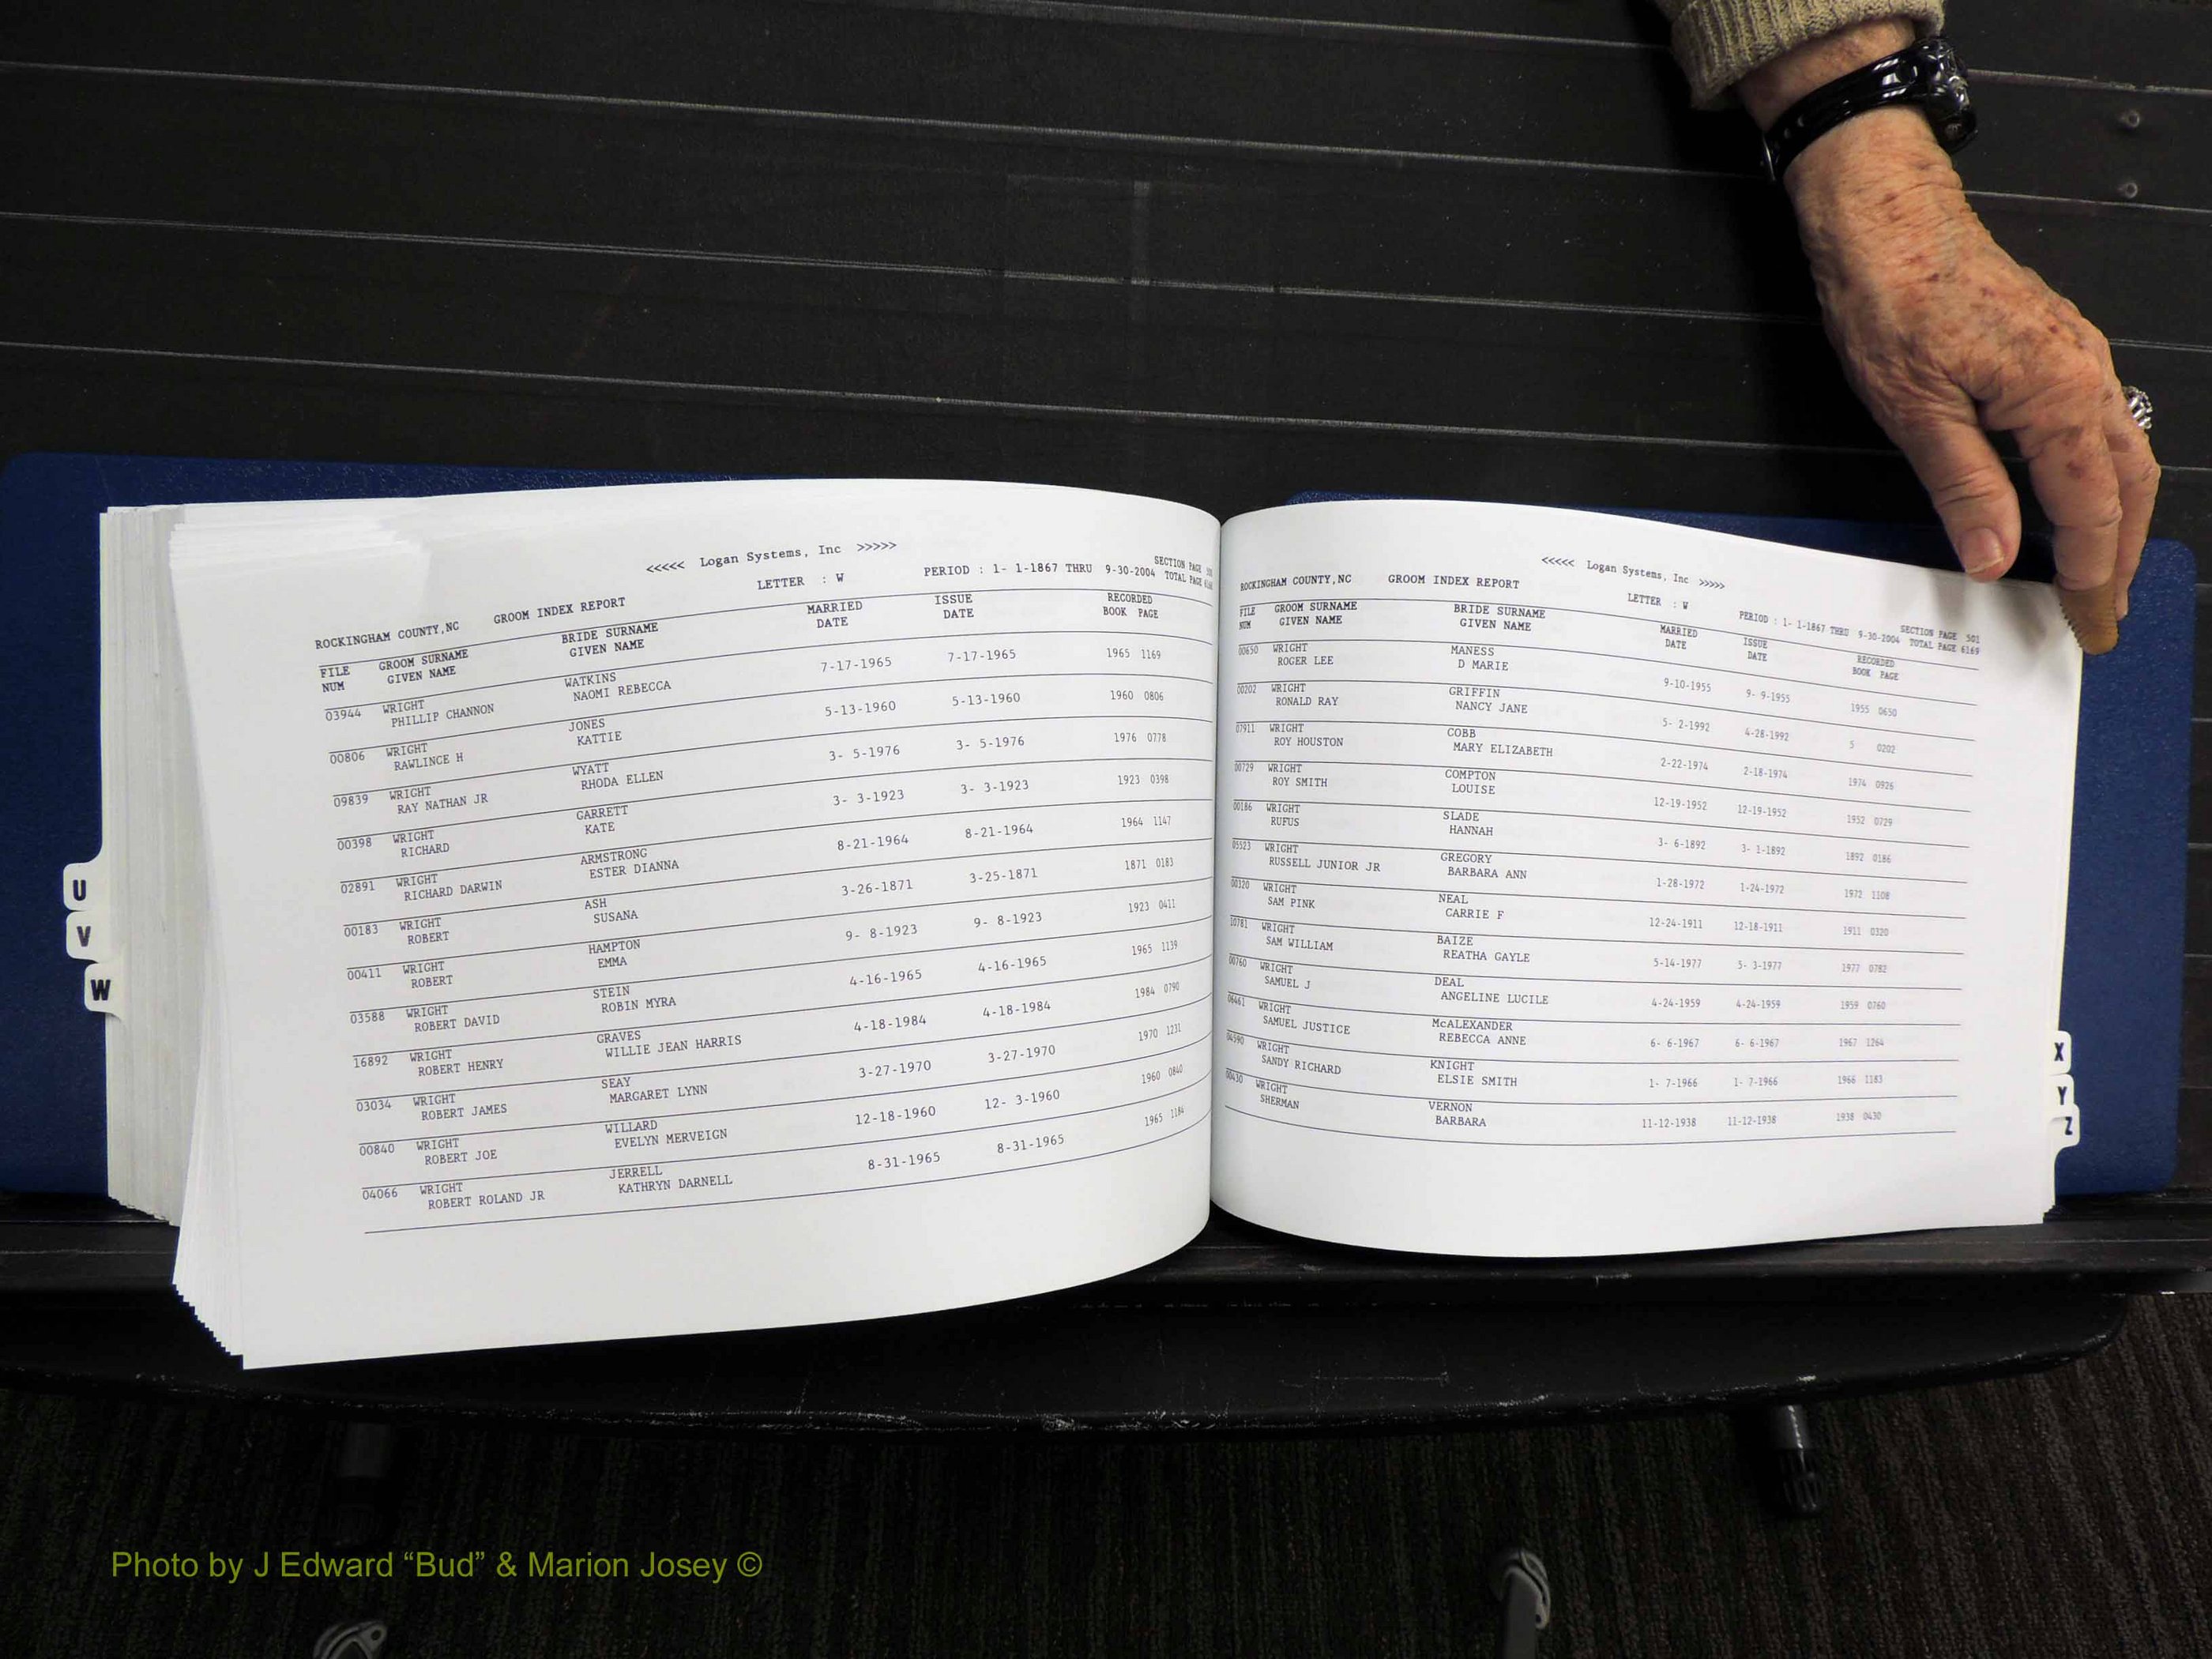 <<<<< Logan Systems, Inc >>>>>
ROCKINGHAM COUNTY,NC GROOM INDEX REPORT LETTER : W PERIOD : 1- 1-1867 THRU 9-30-2004 SECTION PAGE
TOTAL PAGE
FILE GROOM SURNAME BRIDE SURNAME MARRIED ISSUE RECORDED
NUM GIVEN NAME GIVEN NAME DATE DATE BOOK PAGE
03944 WRIGHT WATKINS 7-17-1965 7-17-1965 1965 1169
PHILLIP CHANNON NAOMI REBECCA
00806 WRIGHT JONES 5-13-1960 5-13-1960 1960 0806
RAWLINCE H KATTIE
09839 WRIGHT WYATT 3- 5-1976 3- 5-1976 1976 0778
RAY NATHAN JR RHODA ELLEN
00398 WRIGHT GARRETT 3- 3-1923 3- 3-1923 1923 0398
RICHARD KATE
02891 WRIGHT ARMSTRONG 8-21-1964 8-21-1964 1964 1147
RICHARD DARWIN ESTER DIANNA
00183 WRIGHT ASH 3-26-1871 3-25-1871 1871 0183
ROBERT SUSANA
00411 WRIGHT HAMPTON 9- 8-1923 9- 8-1923 1923 0411
ROBERT EMMA
03588 WRIGHT STEIN 4-16-1965 4-16-1965 1965 1139
ROBERT DAVID ROBIN MYRA
16892 WRIGHT GRAVES 4-18-1984 4-18-1984 1984 0790
ROBERT HENRY WILLIE JEAN HARRIS
03034 WRIGHT SEAY 3-27-1970 3-27-1970 1970 1231
ROBERT JAMES MARGARET LYNN
00840 WRIGHT WILLARD 12-18-1960 12- 3-1960 1960 0840
ROBERT JOE EVELYN MERVEIGN
04066 WRIGHT JERRELL 8-31-1965 8-31-1965 1965 1184
ROBERT ROLAND JR KATHRYN DARNELL
U
V
W
<<<<< Logan Systems, Inc >>>>>
ROCKINGHAM COUNTY,NC GROOM INDEX REPORT LETTER : W PERIOD : 1- 1-1867 THRU 9-30-2004 SECTION PAGE 501
TOTAL PAGE 6169
FILE GROOM SURNAME BRIDE SURNAME MARRIED ISSUE RECORDED
NUM GIVEN NAME GIVEN NAME DATE DATE BOOK PAGE
00650 WRIGHT MANESS 9-10-1955 9- 9-1955 1955 0650
ROGER LEE D MARIE
00202 WRIGHT GRIFFIN 5- 2-1992 4-28-1992 5 0202
RONALD RAY NANCY JANE
07911 WRIGHT COBB 2-22-1974 2-18-1974 1974 0926
ROY HOUSTON MARY ELIZABETH
00729 WRIGHT COMPTON 12-19-1952 12-19-1952 1952 0729
ROY SMITH LOUISE
00186 WRIGHT SLADE 3- 6-1892 3- 1-1892 1892 0186
RUFUS HANNAH
05523 WRIGHT GREGORY 1-28-1972 1-24-1972 1972 1108
RUSSELL JUNIOR JR BARBARA ANN
00320 WRIGHT NEAL 12-24-1911 12-18-1911 1911 0320
SAM PINK CARRIE F
10781 WRIGHT BAIZE 5-14-1977 5- 3-1977 1977 0782
SAM WILLIAM REATHA GAYLE
00760 WRIGHT DEAL 4-24-1959 4-24-1959 1959 0760
SAMUEL J ANGELINE LUCILE
06461 WRIGHT McALEXANDER 6- 6-1967 6- 6-1967 1967 1264
SAMUEL JUSTICE REBECCA ANNE
04590 WRIGHT KNIGHT 1- 7-1966 1- 7-1966 1966 1183
SANDY RICHARD ELSIE SMITH
00430 WRIGHT VERNON 11-12-1938 11-12-1938 1938 0430
SHERMAN BARBARA
X
Y
Z
Photo by J Edward “Bud” & Marion Josey ©